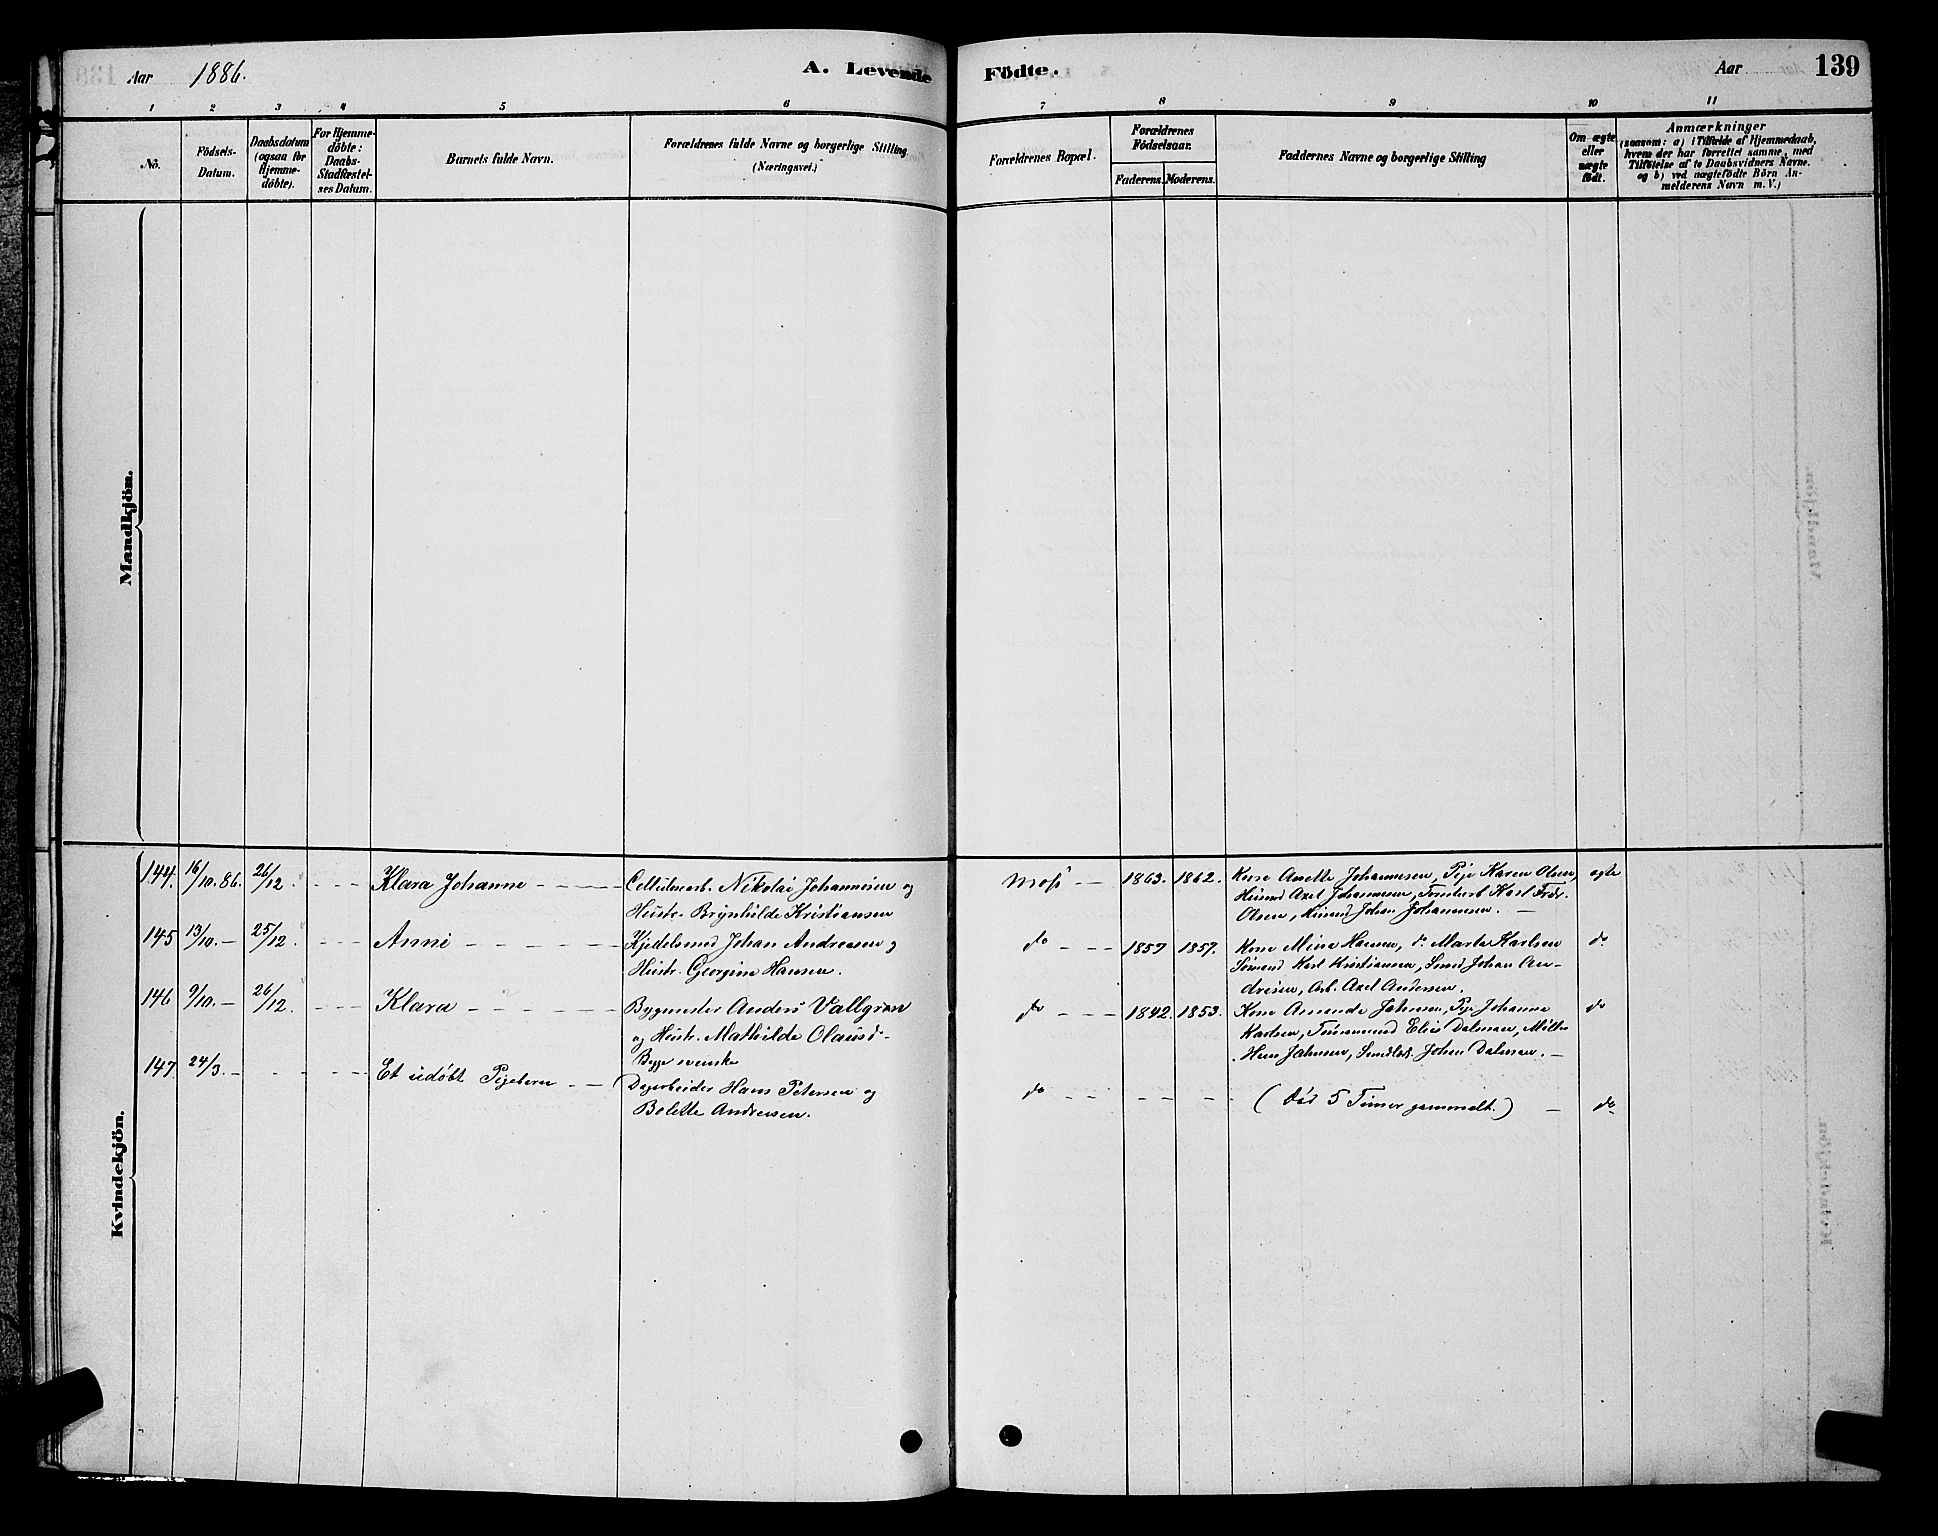 Aar 1886. A. Levende Födte. Aar 139
1 2 3 4 5 6 7 8 9 10 11
No.
Födsels-
Datum.
Daabsdatum
(ogsaa for
Hjemme-
döbte).
For Hjemme-
döbte:
Daabs-
Stadfæstel-
ses Datum.
Barnets fulde Navn.
Forældrenes fulde Navne og borgerlige Stilling
(Næringsvei.)
Forældrenes Bopæl.
Forældrenes
Födselsaar.
Faderens. Moderens.
Faddernes Navne og borgerlige Stilling
Om ægte
eller
uægte
födt.
Anmærkninger
(saasom: a) i Tilfælde af Hjemmedaab,
hvem der har forrettet samme, med
Tilföielse af to Daabsvidners Navne.
og b) ved uægtefödte Börn An-
melderens Navn m. V.)
Mandkjön.
Kvindekjön.
144. 16/10.86. 26/12 - - - Klara Johanne - - - - Cellulosearb. Nikolai Johannesen og
Hustr. Brynhilde Kristiansen
Moss - - 1863. 1862. Kone Anette Johannesen, Pige Karen Olsen,
Husmd Axel Johannesen, Tombert Karl Fredr.
Olsen, Husmd Johan Johannesen. - ægte
145 13/10. - 25/12. - - - Anni - - - - - Kjedelsmed Johan Andresen og
Hustr. Georgine Hansen.
do - - - 1859 1857. Kone Mina Hansen, do Marte Karlsen
Sömand Karl Kristiansen, Smed Johan An-
dresen, Arb. Axel Andersen. do
146 9/10. - 26/12. - - - Klara - - - - - Bygmester Anders Vallgren
og Hustr. Mathilde Olausd.
Begge svenske
do - - - 1842. 1853. Kone Amanda Johnsen, Pige Johanna
Karlsen, Tömmermand Elias Dalman, Møller
Hans Johnsen, Johan Dalman. - do
147. 24/3. - - - - - Et udöbt Pigebarn - - Dagarbeider Hans Petersen og
Bolette Andresen.
do - - - - - (död 5 Timer gammelt.) - do